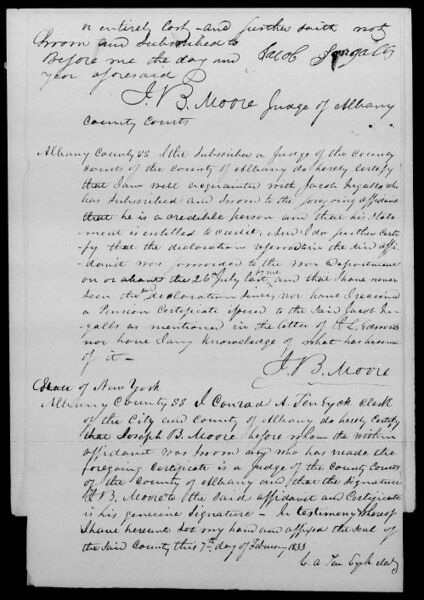 or entirely lost - and further saith not
Sworn and subscribed to
Before me the day and Jacob Ingalls
year aforesaid
J. B. Moore Judge of Albany
County Courts
Albany County SS I the Subscriber a Judge of the County
Courts of the County of Albany do hereby certify
that I am well acquainted with Jacob Ingalls who
has subscribed and sworn to the foregoing affidavit
that he is a credible person and that his state
ment is entitled to credit, And I do further certi
fy that the declaration refered to in the said affi
davit was forwarded to the War Department
on or about the 26th July last by me and that I have never
seen the sd declaration since, nor have I received
a Pension Certificate issued to the said Jacob In
galls as mentioned in the letter of J L Edwards
nor have I any knowledge of what has become
of it -
J. B. Moore
State of New York
Albany County SS I Conrad A. Ten Eyck Clerk
of the City and County of Albany do hereby Certify
that Joseph B. Moore before whom the within
affidavit was sworn and who has made the
foregoing Certificate is a Judge of the County Courts
of the County of Albany and that the signature
J. B. Moore to the said affidavit and Certificate
is his genuine signature - In testimony whereof
I have hereunto set my hand and affixed the seal of
the said County this 7th day of February 1833
C. A. Ten Eyck clerk